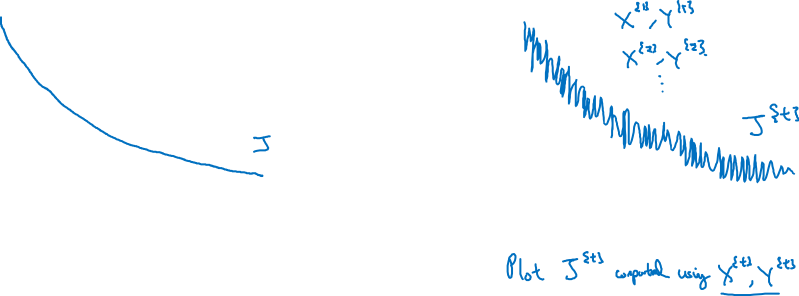 X^{1}, Y^{1}
X^{2}, Y^{2}.
⋮
J
J^{t}
Plot J^{t} computed using X^{t}, Y^{t}